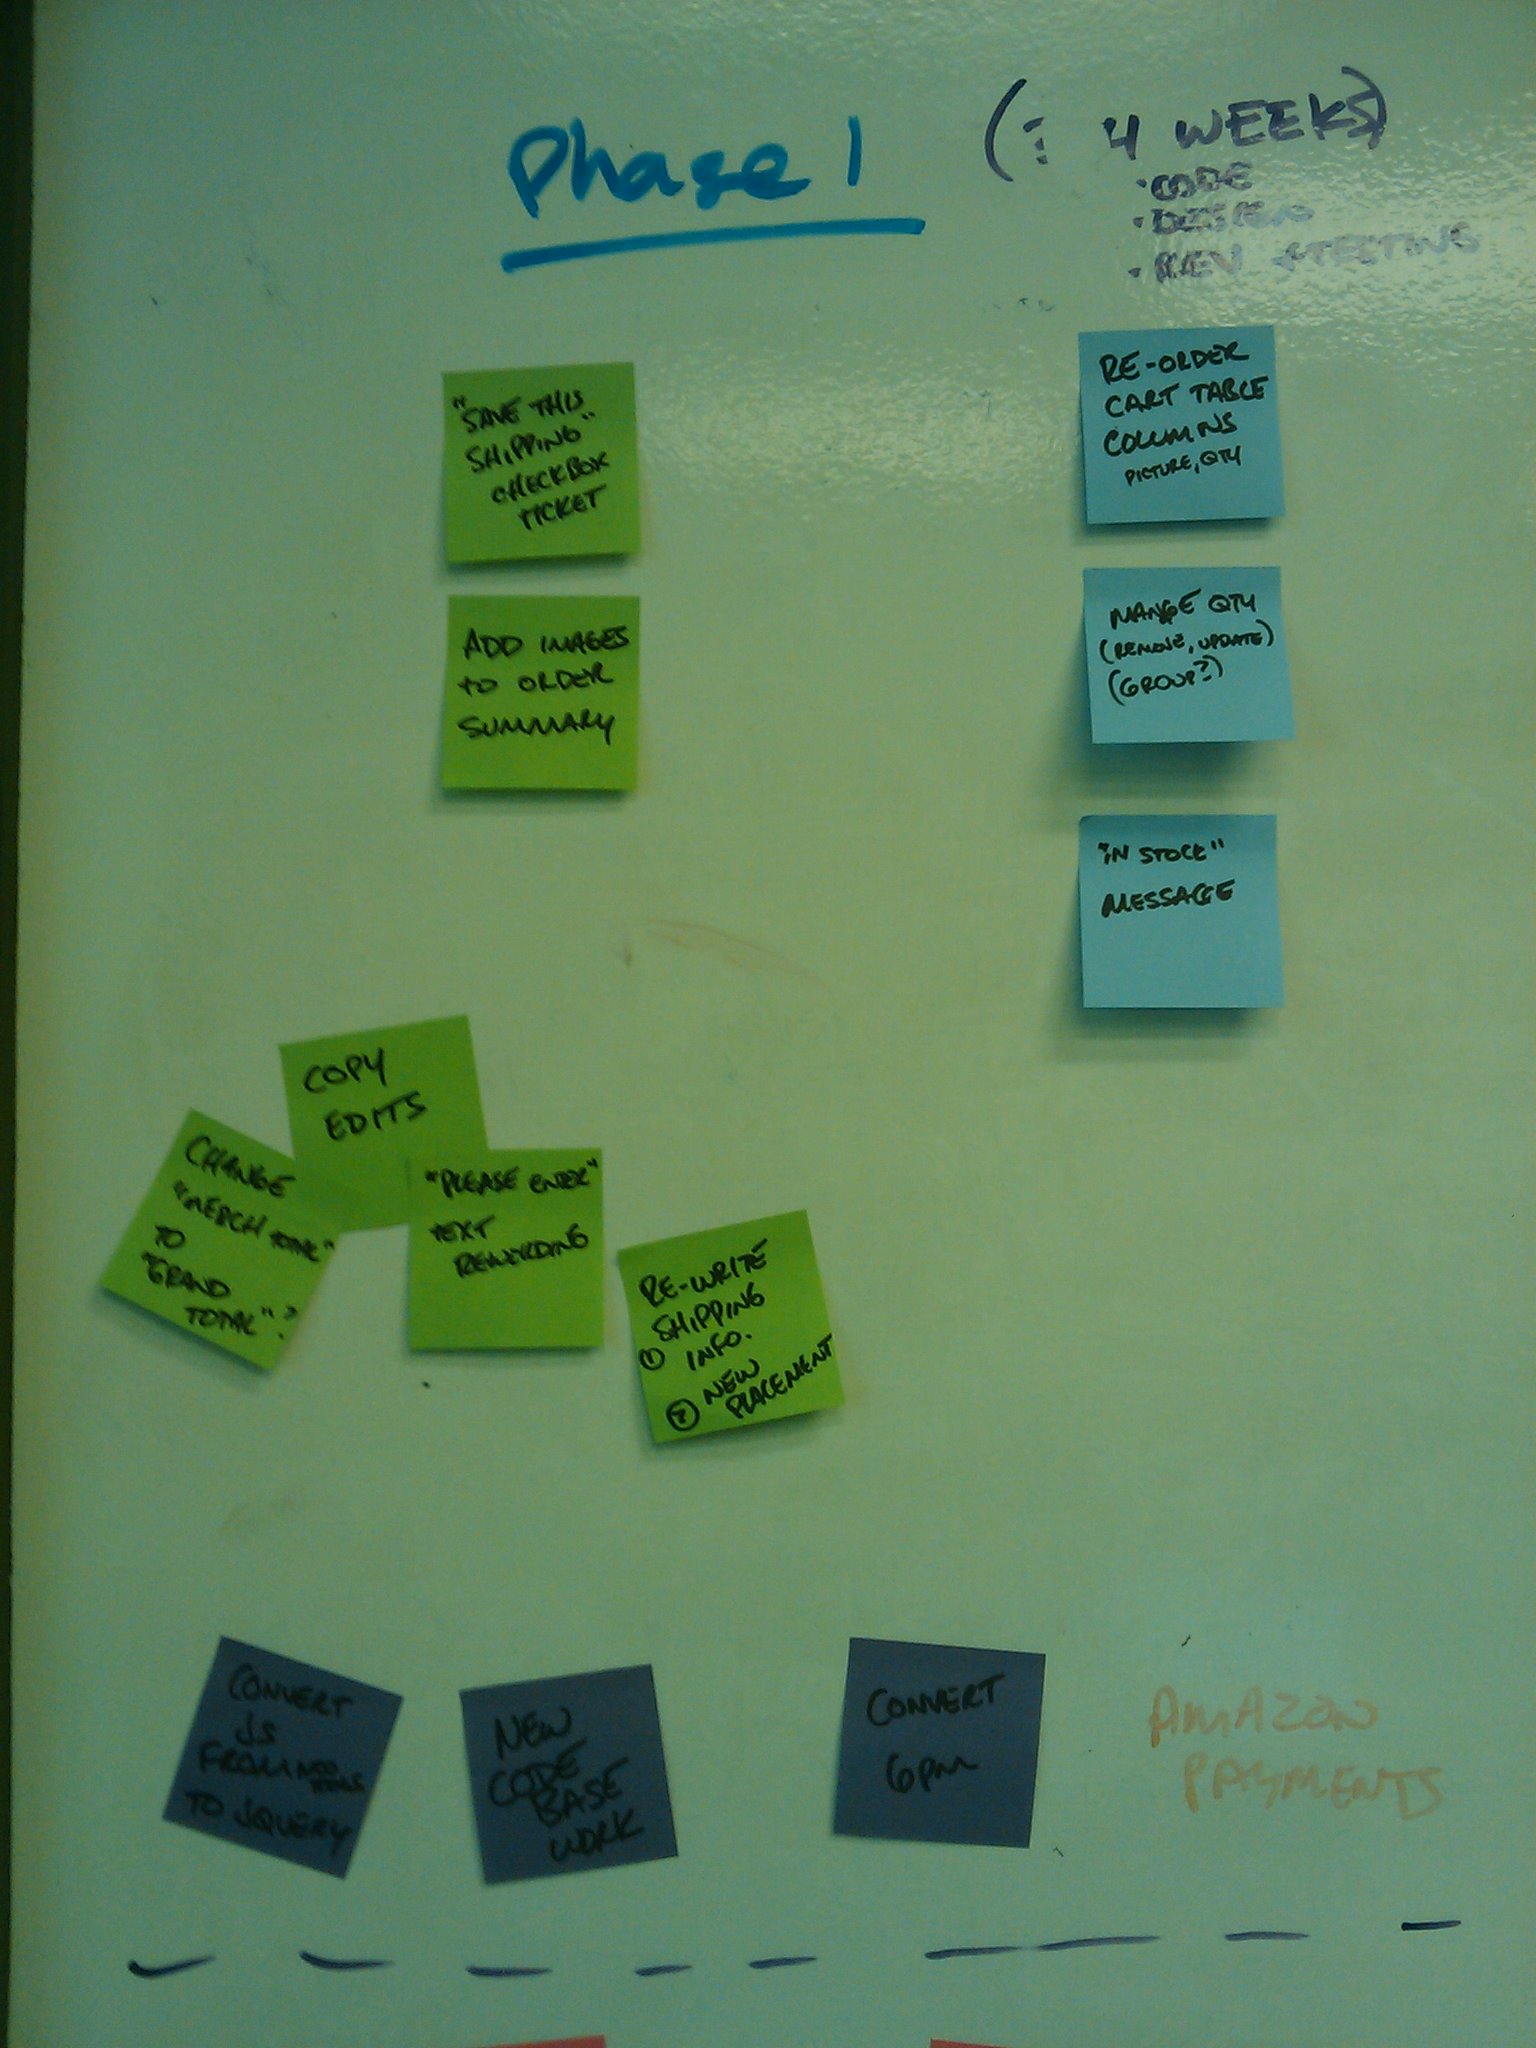 Phase 1
(: 4 WEEKS)
· CODE
· DESIGN
· REV + TESTING
"SAVE THIS
SHIPPING"
CHECKBOX
TICKET
RE-ORDER
CART TABLE
COLUMNS
PICTURE, QTY
ADD IMAGES
TO ORDER
SUMMARY
MANGE QTY
(REMOVE, UPDATE)
(GROUP?)
"IN STOCK"
MESSAGE
COPY
EDITS
CHANGE
"MERCH TOTAL"
TO
"GRAND
TOTAL"?
"PLEASE ENTER"
TEXT
REWORDING
RE-WRITE
SHIPPING
① INFO.
② NEW
PLACEMENT
CONVERT
JS
FROM MOO
TOOLS
TO JQUERY
NEW
CODE
BASE
WORK
CONVERT
6pm
AMAZON
PAYMENTS